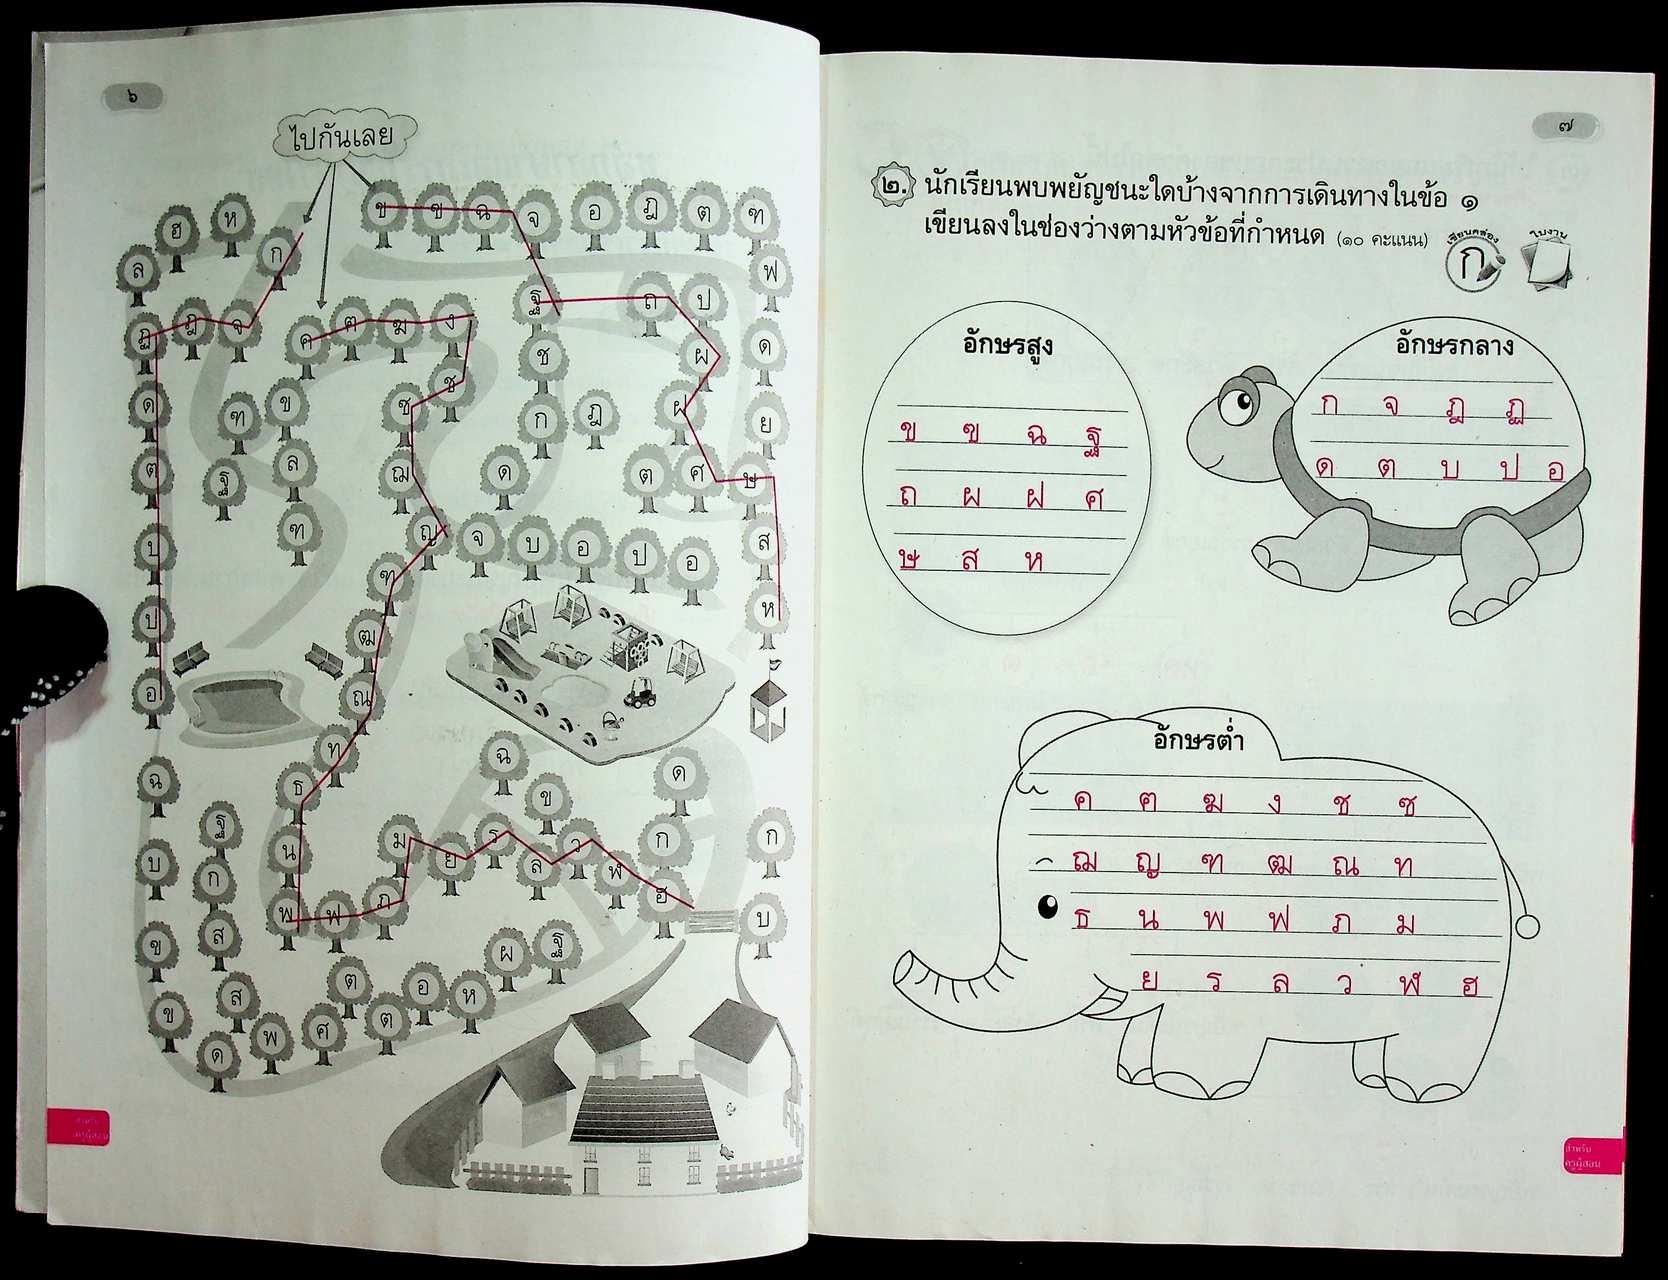 ๖
ไปกันเลย
ข ฃ ฉ จ อ ฎ ต ฑ
ล ฮ ห ก
ฟ
ฏ ฎ จ ค ฅ ฆ ง ฐ ถ ป
ช ผ ด
ด ฑ ข ซ ช ก ฎ ฝ ย
ต ฐ ล ฌ ด ต ศ ษ
บ ฑ ญ จ บ อ ป อ ส
ป ฑ ห
ฒ
อ ณ
ท
ฉ ธ ฉ ด
ฐ ข
บ ก น ม ย ร ล ว ฬ ก ก
ฮ
ข ส พ ฟ ภ บ
ผ ฐ
ข ส ต อ ห
ด พ ศ ต
สำหรับ
ครูผู้สอน
๗
๒. นักเรียนพบพยัญชนะใดบ้างจากการเดินทางในข้อ ๑
เขียนลงในช่องว่างตามหัวข้อที่กำหนด (๑๐ คะแนน)
เขียนคล่อง
ก
ใบงาน
อักษรสูง
ข ฃ ฉ ฐ
ถ ผ ฝ ศ
ษ ส ห
อักษรกลาง
ก จ ฎ ฏ
ด ต บ ป อ
อักษรต่ำ
ค ฅ ฆ ง ช ซ
ฌ ญ ฑ ฒ ณ ท
ธ น พ ฟ ภ ม
ย ร ล ว ฬ ฮ
สำหรับ
ครูผู้สอน